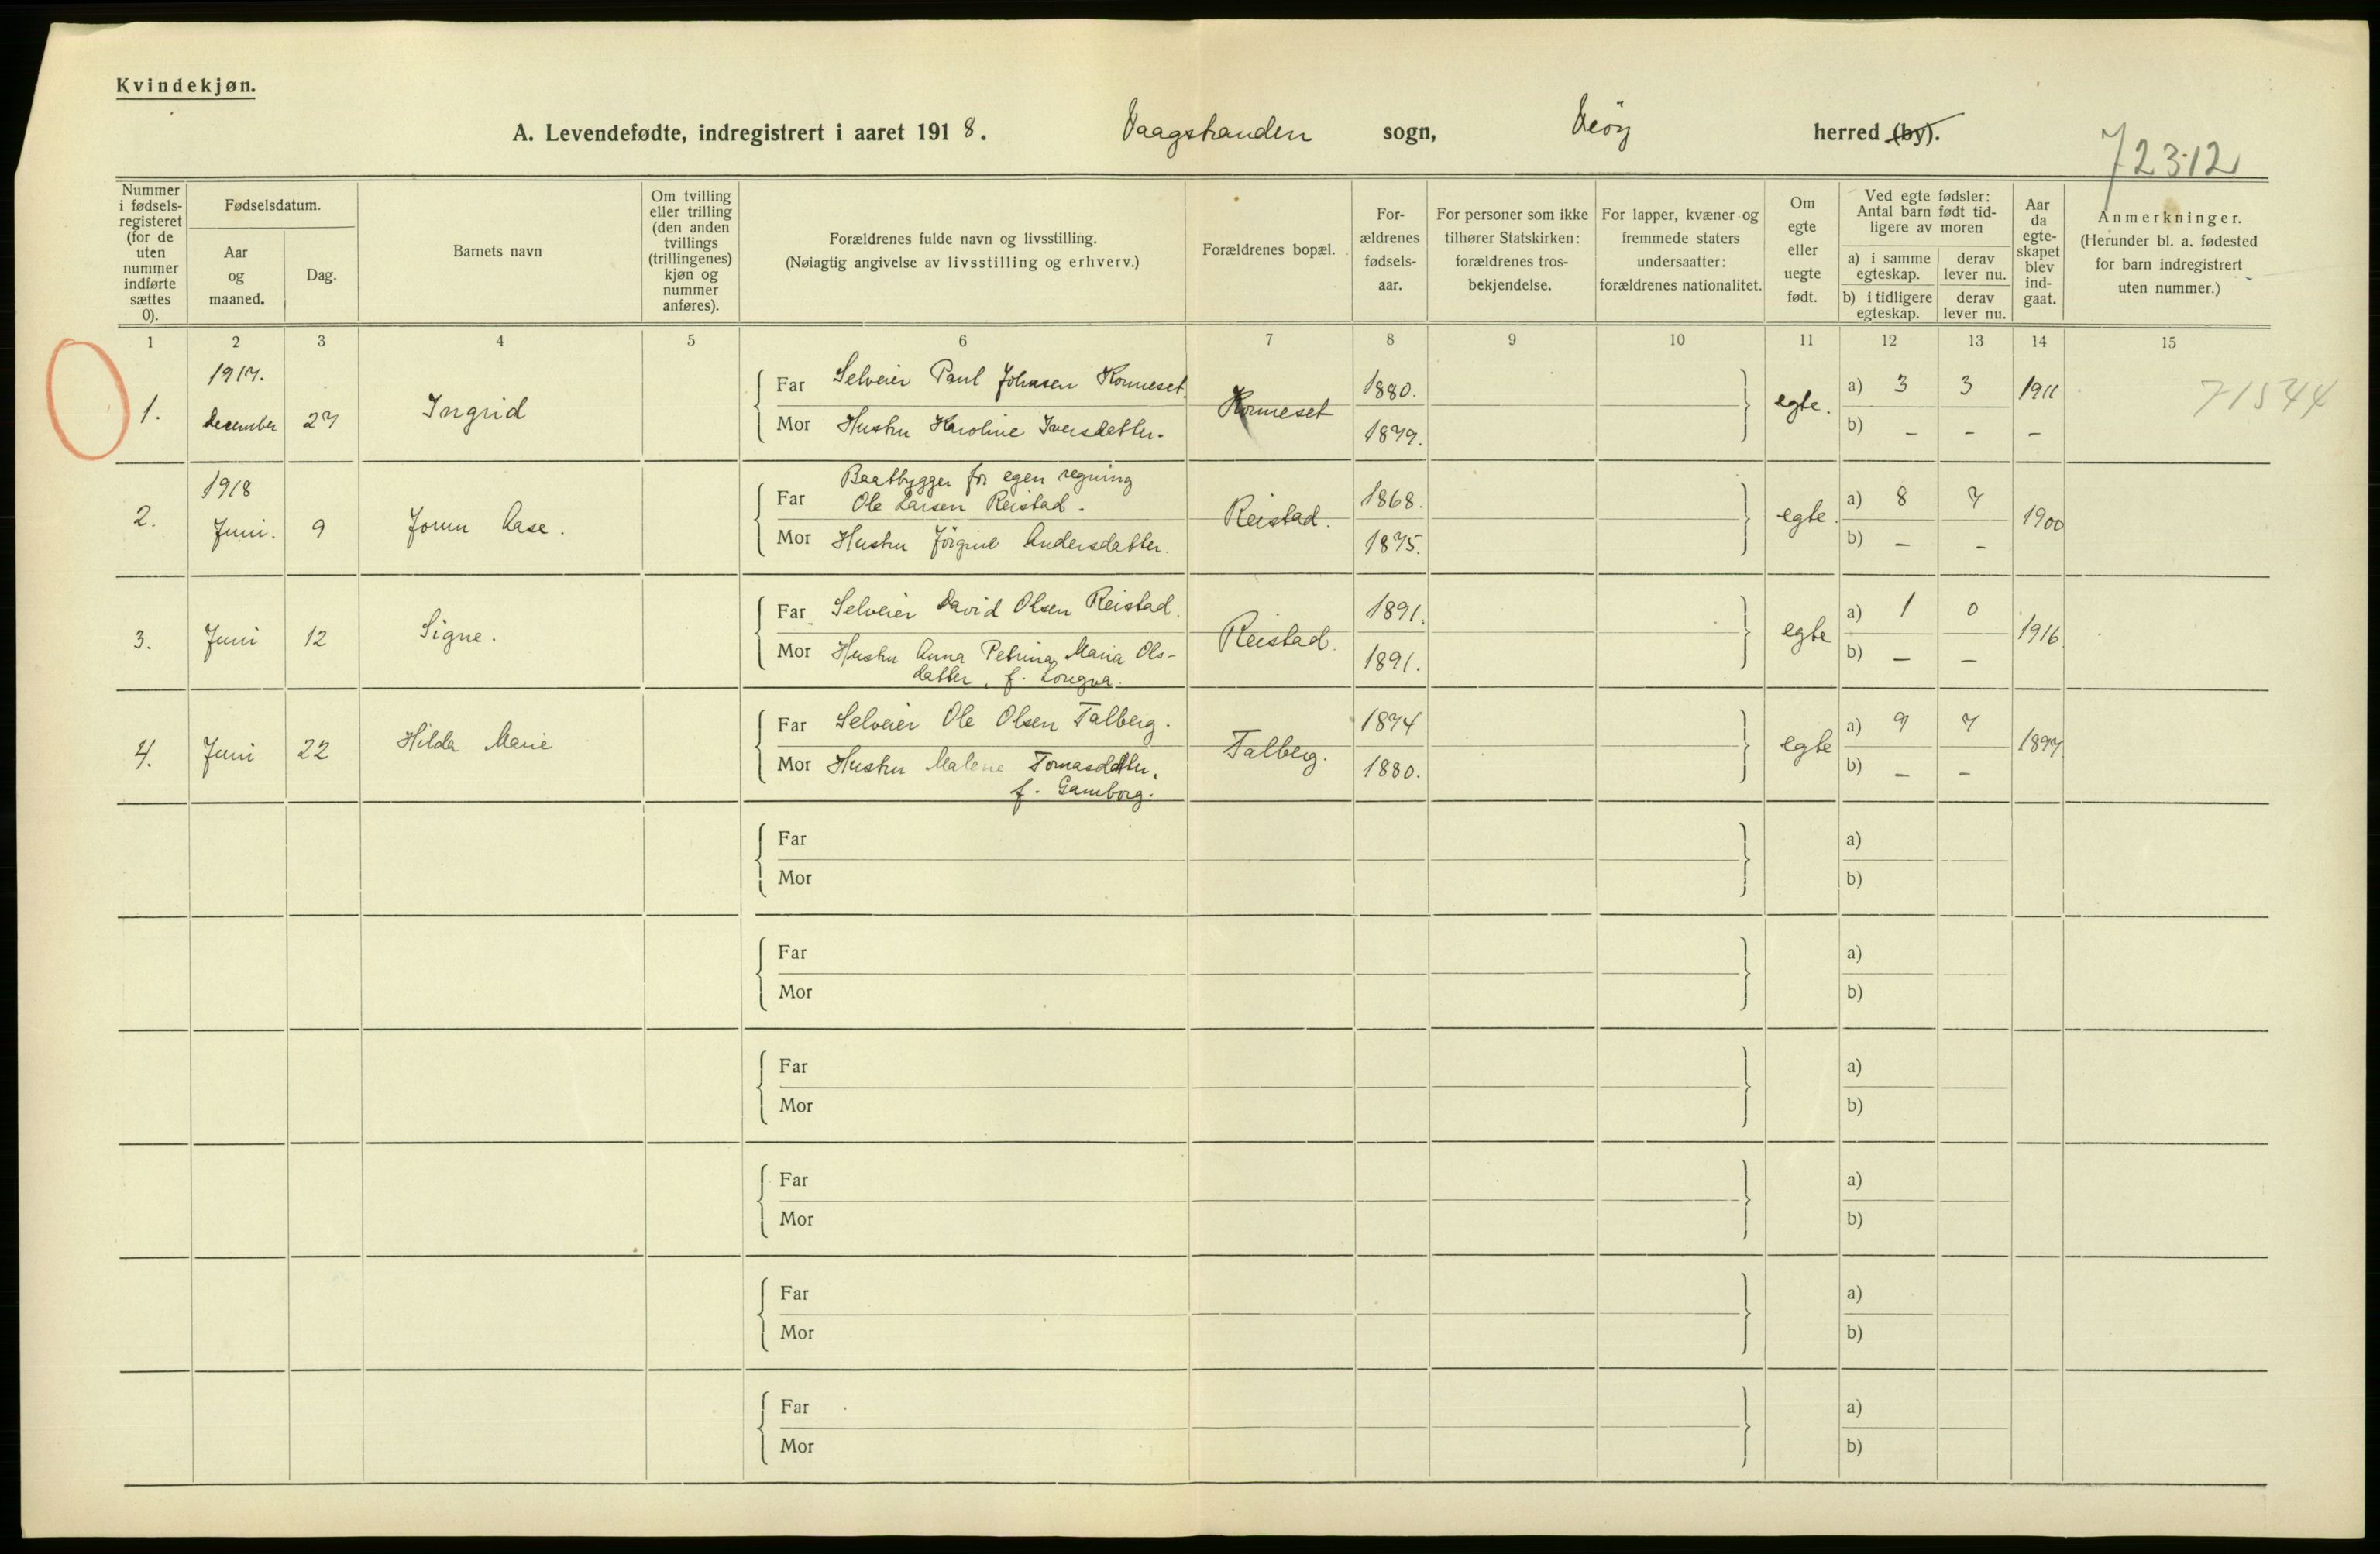 Kvindekjøn.
A. Levendefødte, indregistrert i aaret 1918. Vaagstranden sogn, Veöy herred (by).
72312
Nummer i fødsels-registeret (for de uten nummer indførte sættes 0).
Fødselsdatum.
Aar og maaned.
Dag.
Barnets navn
Om tvilling eller trilling (den anden tvillings (trillingenes) kjøn og nummer anføres).
Forældrenes fulde navn og livsstilling.
(Nøiagtig angivelse av livsstilling og erhverv.)
Forældrenes bopæl.
For-ældrenes fødsels-aar.
For personer som ikke tilhører Statskirken: forældrenes tros-bekjendelse.
For lapper, kvæner og fremmede staters undersaatter: forældrenes nationalitet.
Om egte eller uegte født.
Ved egte fødsler: Antal barn født tid-ligere av moren
a) i samme egteskap.
derav lever nu.
b) i tidligere egteskap.
derav lever nu.
Aar da egte-skapet blev ind-gaat.
Anmerkninger.
(Herunder bl. a. fødested for barn indregistrert uten nummer.)
1 2 3 4 5 6 7 8 9 10 11 12 13 14 15
1917.
1. december 27 Ingrid
Far Selveier Paul Johnsen Konneset. 1880.
Mor Hustru Karoline Iversdatter. 1879.
Konneset
egte.
a) 3 3 1911
b) – – –
71544
1918
2. Juni. 9 Jorun Aase.
Baatbygger for egen regning
Far Ole Larsen Reistad. 1868.
Mor Hustru Jörgine Andersdatter. 1875.
Reistad.
egte.
a) 8 7 1900
b) – –
3. Juni 12 Signe.
Far Selveier David Olsen Reistad. 1891.
Mor Hustru Anna Petrina Maria Ols-
datter, f. Longva. 1891.
Reistad.
egte
a) 1 0 1916
b) – –
4. Juni 22 Hilda Marie
Far Selveier Ole Olsen Talberg. 1874
Mor Hustru Malene Tomasdatter,
f. Gamborg. 1880.
Talberg.
egte
a) 9 7 1897
b) – –
Far a)
Mor b)
Far a)
Mor b)
Far a)
Mor b)
Far a)
Mor b)
Far a)
Mor b)
Far a)
Mor b)